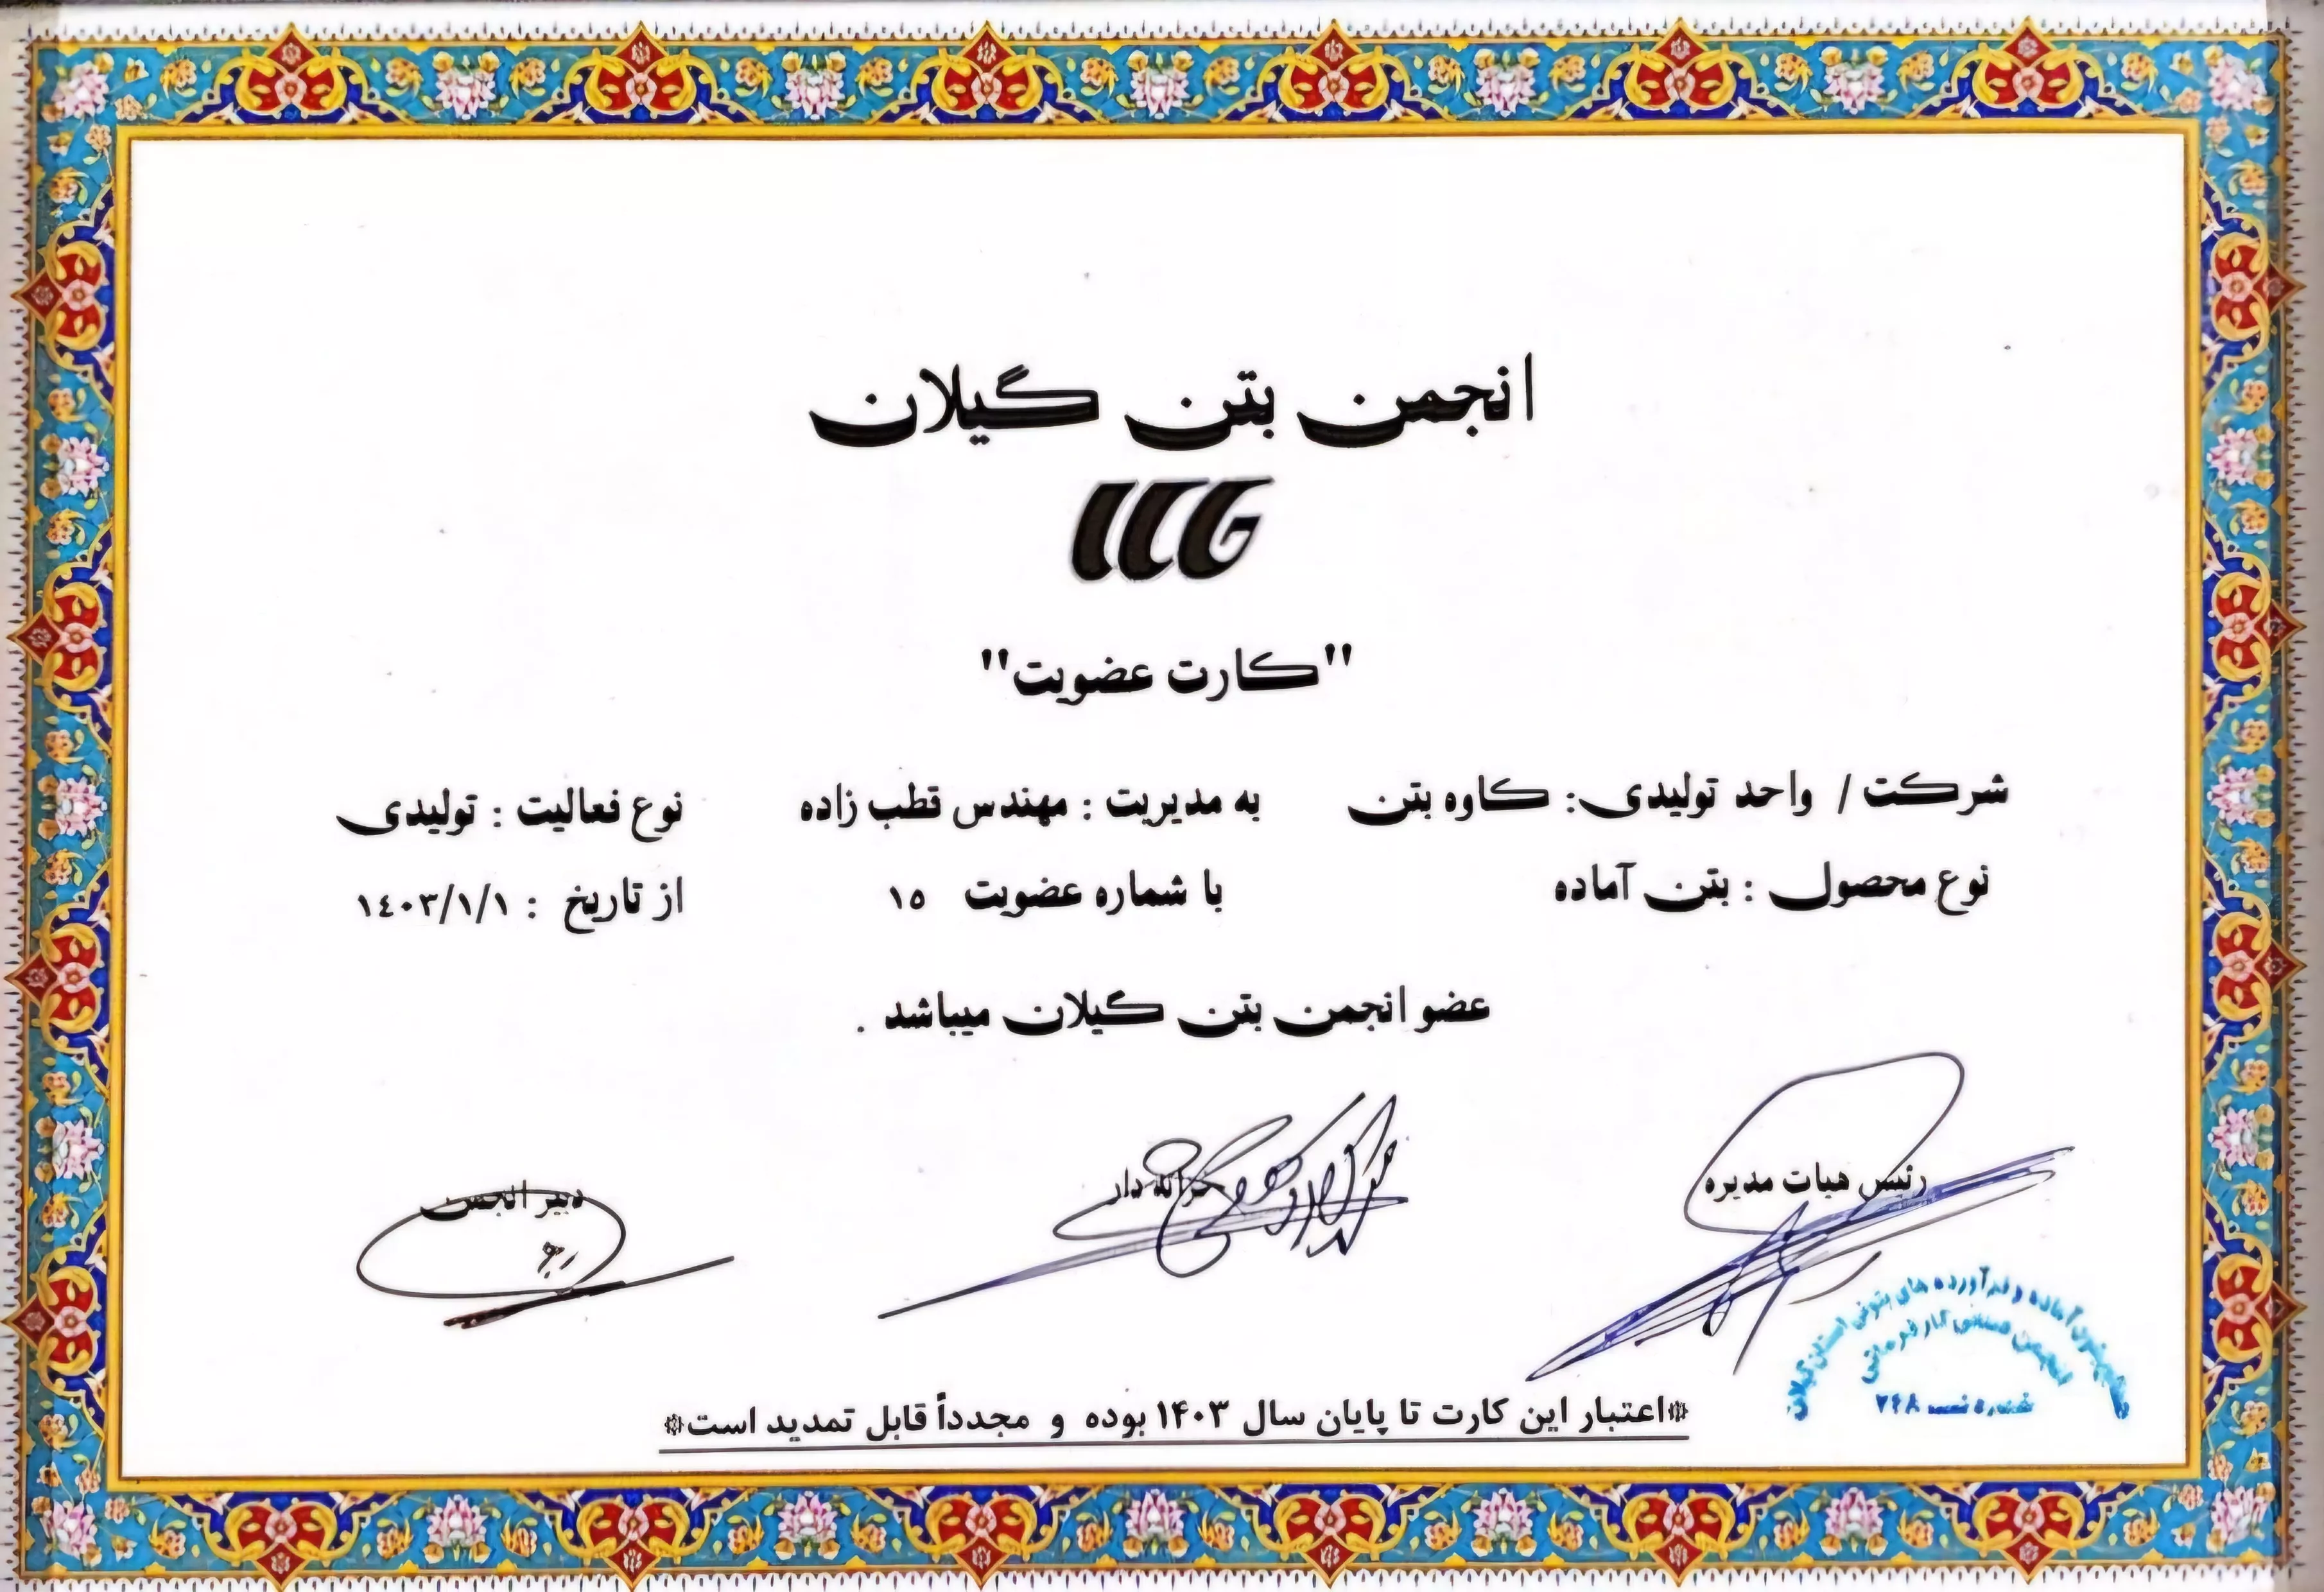 انجمن بتن گیلان
ICG
"کارت عضویت"
شرکت / واحد تولیدی: کاوه بتن به مدیریت : مهندس قطب زاده نوع فعالیت : تولیدی
نوع محصول : بتن آماده با شماره عضویت ۱۵ از تاریخ : ۱٤۰۳/۱/۱
عضو انجمن بتن گیلان میباشد .
رئیس هیات مدیره خزانه دار دبیر انجمن
بتون آماده و فرآورده های بتونی استان گیلان
انجمن صنفی کارفرمائی
شماره ثبت ۲۴۸
*اعتبار این کارت تا پایان سال ۱۴۰۳ بوده و مجدداً قابل تمدید است*